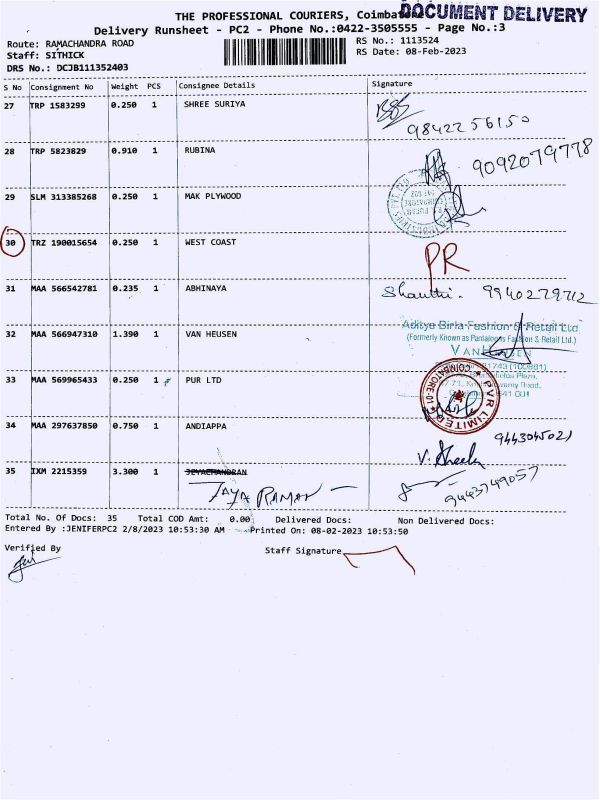 THE PROFESSIONAL COURIERS, Coimbatore
DOCUMENT DELIVERY
Delivery Runsheet - PC2 - Phone No.:0422-3505555 - Page No.:3
Route: RAMACHANDRA ROAD
RS No.: 1113524
Staff: SITHICK
RS Date: 08-Feb-2023
DRS No.: DCJB111352403
S No Consignment No Weight PCS Consignee Details Signature
27 TRP 1583299 0.250 1 SHREE SURIYA
9842256150
28 TRP 5823829 0.910 1 RUBINA
9092079778
29 SLM 313385268 0.250 1 MAK PLYWOOD
30 TRZ 190015654 0.250 1 WEST COAST PR
31 MAA 566542781 0.235 1 ABHINAYA Shanthi. 9940279712
Aditya Birla Fashion & Retail Ltd
(Formerly Known as Pantaloons Fashion & Retail Ltd.)
32 MAA 566947310 1.390 1 VAN HEUSEN
33 MAA 569965433 0.250 1 PUR LTD
PVR LIMITED
COIMBATORE-01
34 MAA 297637850 0.750 1 ANDIAPPA 9443045021
V. Sheela
35 IXM 2215359 3.300 1 JEYACHANDRAN
JAYA RAMAN
9443749057
Total No. Of Docs: 35 Total COD Amt: 0.00 Delivered Docs: Non Delivered Docs:
Entered By :JENIFERPC2 2/8/2023 10:53:30 AM Printed On: 08-02-2023 10:53:50
Verified By
Staff Signature